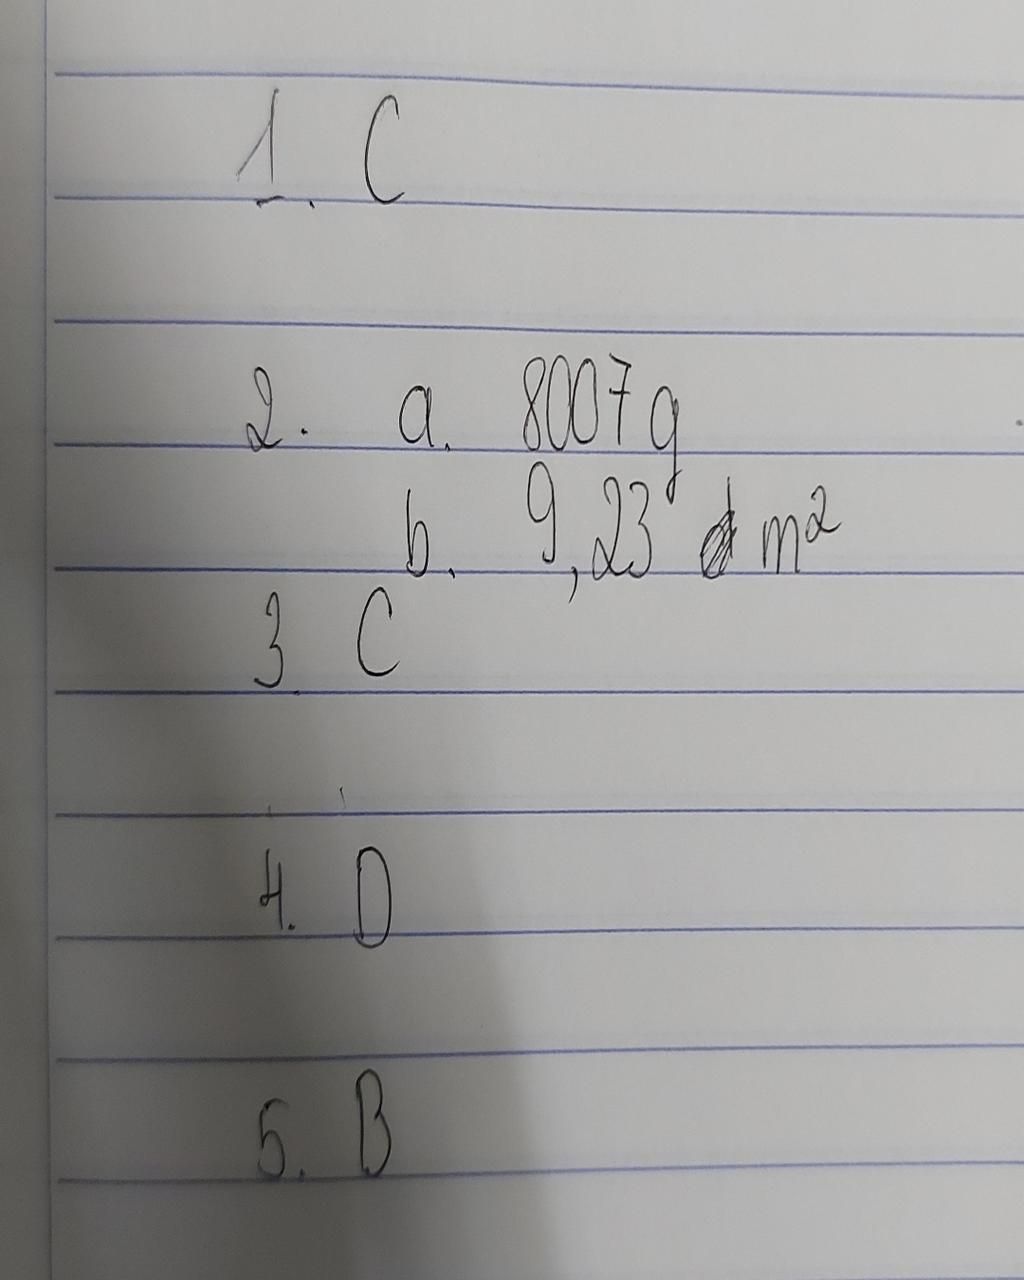 1. C
2. a. 8007 g
b. 9,23 m²
3. C
4. D
5. B